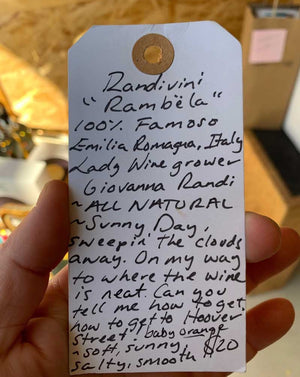 Randivini
"Rambëla"
100% Famoso
Emilia Romagna, Italy
Lady Wine grower
Giovanna Randi
~ALL NATURAL
~Sunny Day,
sweepin' the clouds
away. On my way
to where the wine
is neat. Can you
tell me how to get,
how to get to Hoover
Street! baby orange
~soft, sunny,
salty, smooth $20